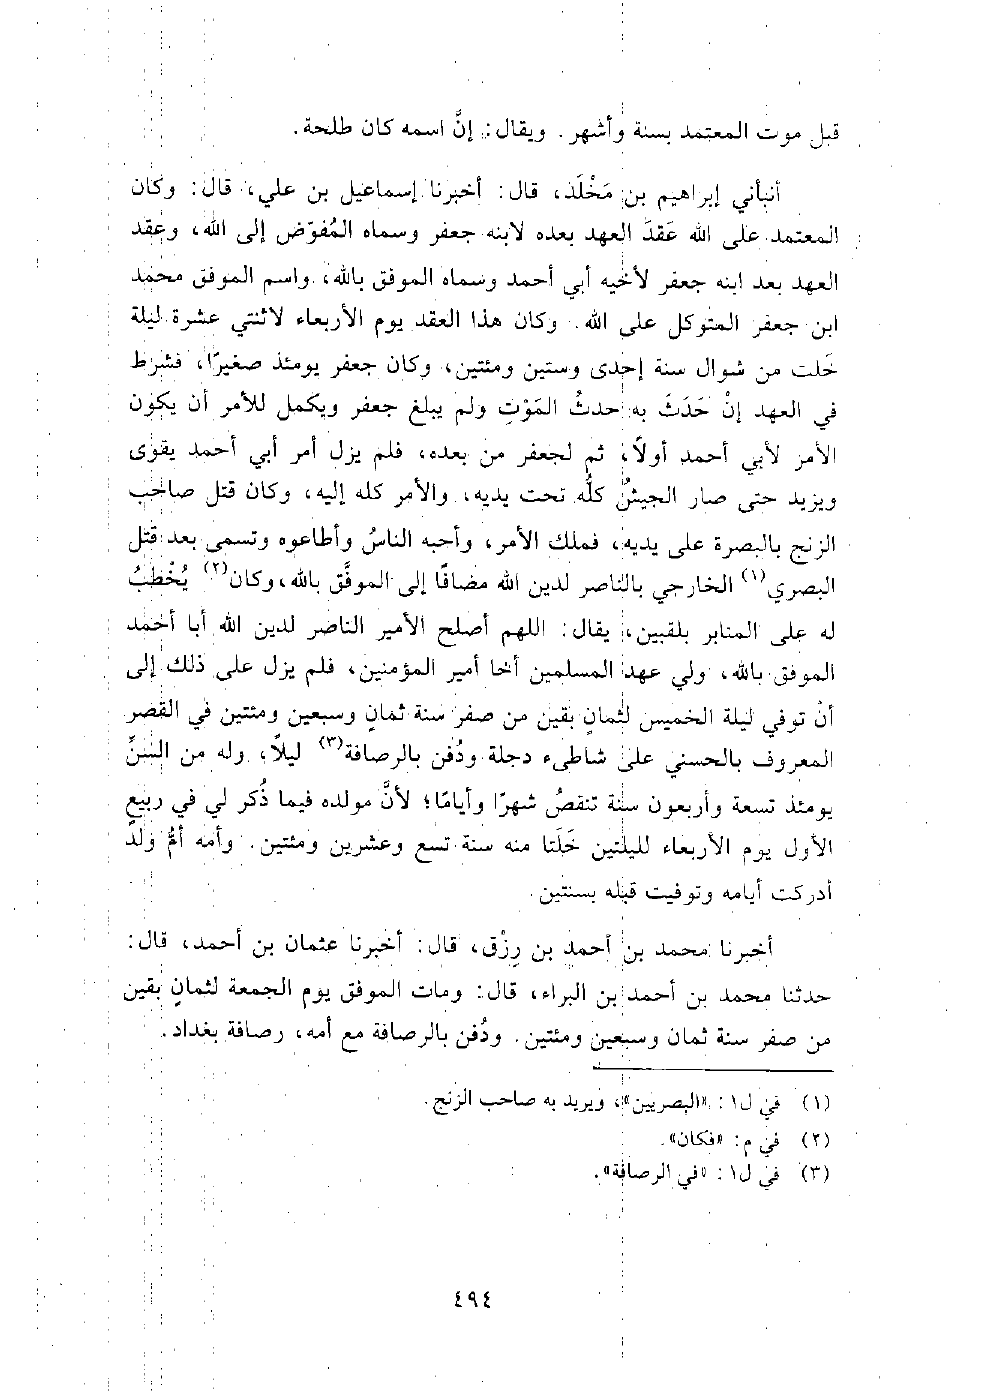 قبل موت المعتمد بسنة وأشهر. ويقال: إنَّ اسمه كان طلحة.
أنبأني إبراهيم بن مَخْلَد، قال: أخبرنا إسماعيل بن علي، قال: وكان
المعتمد على الله عَقدَ العهد بعده لابنه جعفر وسماه المُفوّض إلى الله، وعقد
العهد بعد ابنه جعفر لأخيه أبي أحمد وسماه الموفق بالله، واسم الموفق محمد
ابن جعفر المتوكل على الله. وكان هذا العقد يوم الأربعاء لاثنتي عشرة ليلة
خَلت من شوال سنة إحدى وستين ومئتين، وكان جعفر يومئذ صغيرًا، فشرط
في العهد إنْ حَدَثَ به حدثُ المَوْتِ ولم يبلغ جعفر ويكمل للأمر أن يكون
الأمر لأبي أحمد أولاً، ثم لجعفر من بعده، فلم يزل أمر أبي أحمد يقوى
ويزيد حتى صار الجيشُ كلُّه تحت يديه، والأمر كله إليه، وكان قتل صاحب
الزنج بالبصرة على يديه، فملك الأمر، وأحبه الناسُ وأطاعوه وتسمى بعد قتل
البصري(١) الخارجي بالناصر لدين الله مضافًا إلى الموفَّق بالله، وكان(٢) يُخْطَبُ
له على المنابر بلقبين، يقال: اللهم أصلح الأمير الناصر لدين الله أبا أحمد
الموفق بالله، ولي عهد المسلمين أخا أمير المؤمنين، فلم يزل على ذلك إلى
أنْ توفي ليلة الخميس لثمانٍ بقين من صفر سنة ثمانٍ وسبعين ومئتين في القصر
المعروف بالحسني على شاطىء دجلة ودُفن بالرصافة(٣) ليلاً، وله من السنِّ
يومئذ تسعة وأربعون سنة تنقصُ شهرًا وأيامًا؛ لأنَّ مولده فيما ذُكر لي في ربيعٍ
الأول يوم الأربعاء لليلتين خَلَتا منه سنة تسع وعشرين ومئتين. وأمه أمُّ ولد
أدركت أيامه وتوفيت قبله بسنتين.
أخبرنا محمد بن أحمد بن رِزْق، قال: أخبرنا عثمان بن أحمد، قال:
حدثنا محمد بن أحمد بن البراء، قال: ومات الموفق يوم الجمعة لثمانٍ بقين
من صفر سنة ثمان وسبعين ومئتين. ودُفن بالرصافة مع أمه، رصافة بغداد.
(١) في ل١: «البصريين»، ويريد به صاحب الزنج.
(٢) في م: «فكان».
(٣) في ل١: «في الرصافة».
٤٩٤